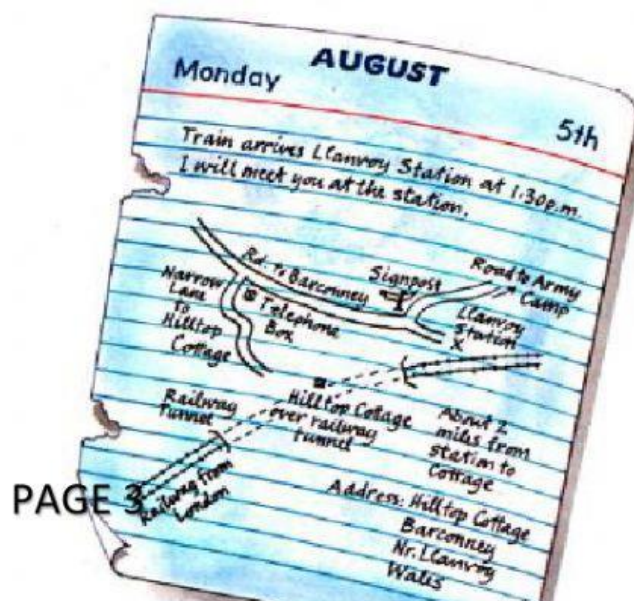 AUGUST
Monday
5th
Train arrives Llanvoy Station at 1:30p.m.
I will meet you at the station.
Rd. to Barconney
Signpost
Road to Army
Camp
Narrow
Lane
to
Hilltop
Cottage
Telephone
Box
Llanvoy
Station
X
Railway
tunnel
Hilltop Cottage
over railway
tunnel
About 2
miles from
station to
Cottage
Railway from
London
PAGE 3
Address: Hilltop Cottage
Barconney
Nr. Llanvoy
Wales